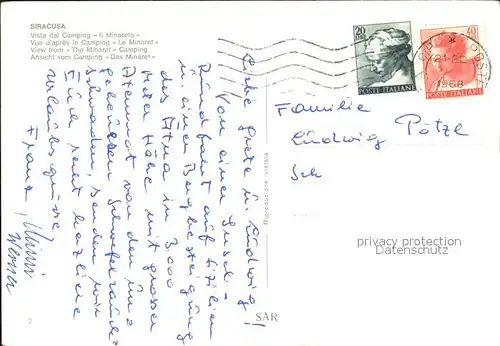 SIRACUSA
Vista dal Camping «Il Minareto»
Vue d'après le Camping «Le Minaret»
View from «The Minaret» Camping
Ansicht vom Camping «Das Minaret»
20
LIRE
POSTE ITALIANE
40
POSTE ITALIANE
1968
Liebe Grete u. Ludwig!
Von einer Insel-
Rundfahrt auf Sizilien
u. einer Bergbesteigung
des Ätna in 3.000
Meter Höhe mit grosser
Atemnot von den uns
Schwefelrauch-
schwaden, senden wir
Euch recht herzliche
Urlaubsgrüsse
Franz,
Werner
Familie
Ludwig Pötzl
Sch
(riproduzione vietata)
privacy protection
Datenschutz
SAR
2